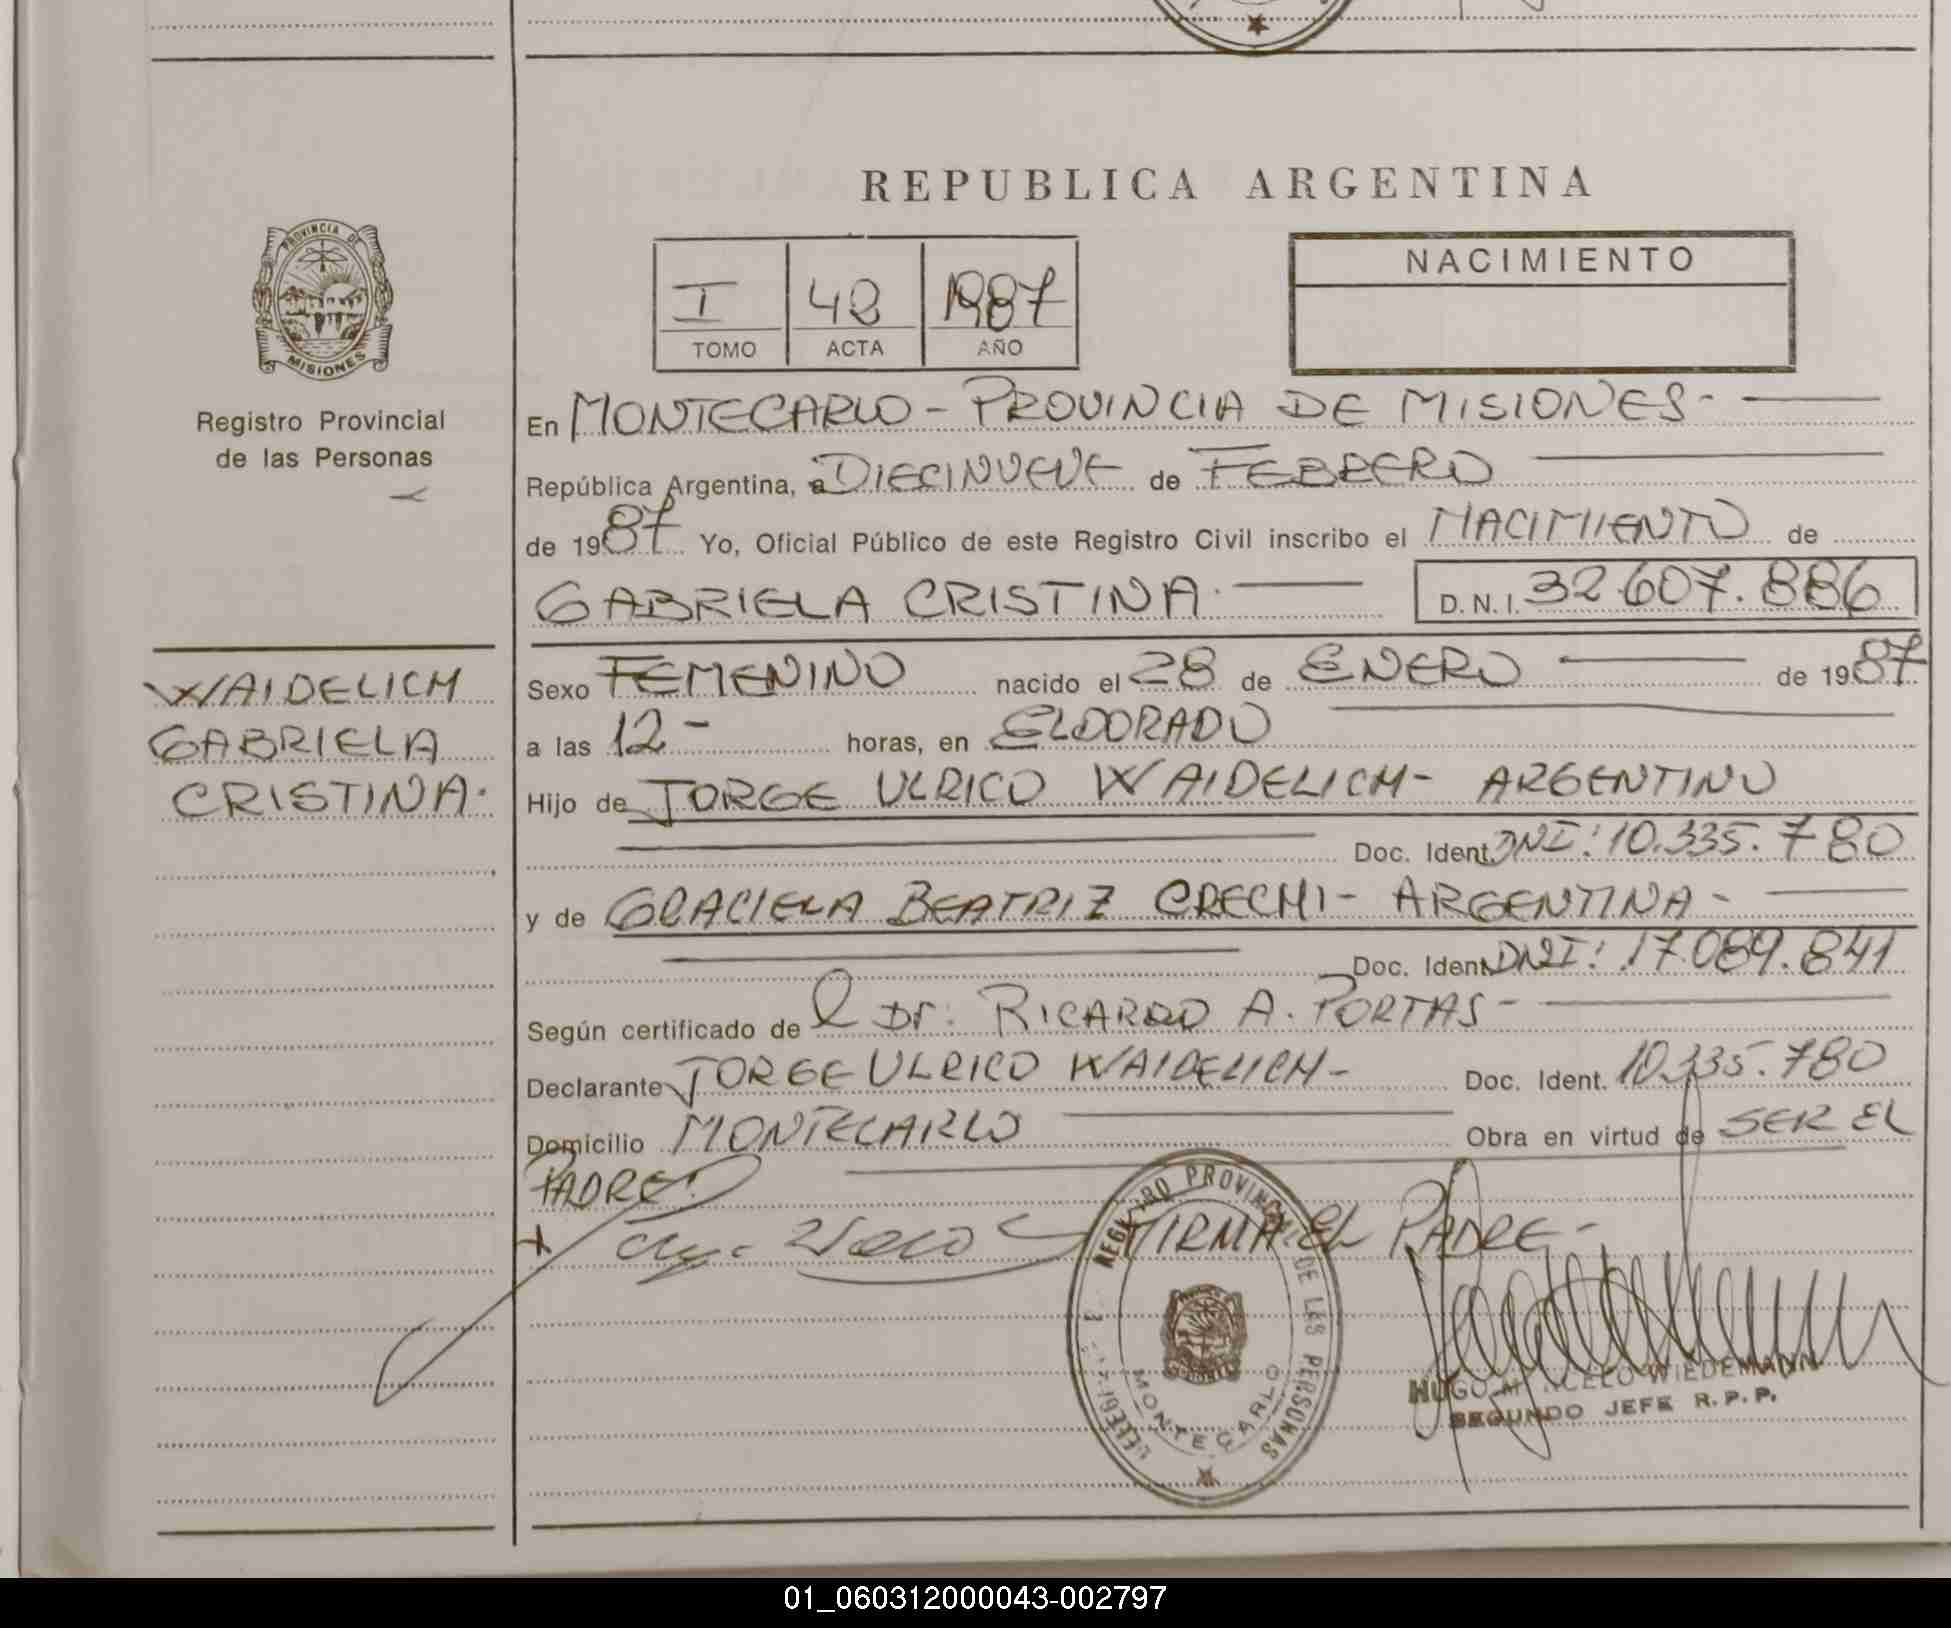 REPUBLICA ARGENTINA
PROVINCIA DE
MISIONES
Registro Provincial
de las Personas
I 42 1987
TOMO ACTA AÑO
NACIMIENTO
En MONTECARLO - PROVINCIA DE MISIONES -
República Argentina, a DIECINUEVE de FEBRERO
de 1987 Yo, Oficial Público de este Registro Civil inscribo el NACIMIENTO de
GABRIELA CRISTINA. D.N.I. 32.607.886
WAIDELICH
GABRIELA
CRISTINA.
Sexo FEMENINO nacido el 28 de ENERO de 1987
a las 12 - horas, en ELDORADO
Hijo de JORGE ULRICO WAIDELICH - ARGENTINO
Doc. Ident. DNI: 10.335.780
y de GRACIELA BEATRIZ CRECHI - ARGENTINA -
Doc. Ident. DNI: 17.089.841
Según certificado de l Dr. RICARDO A. PORTAS -
Declarante JORGE ULRICO WAIDELICH - Doc. Ident. 10.335.780
Domicilio MONTECARLO Obra en virtud de SER EL
PADRE.
FIRMA EL PADRE -
REGISTRO PROVINCIAL DE LAS PERSONAS
MONTECARLO
HUGO MARCELO WIEDEMANN
SEGUNDO JEFE R.P.P.
01_060312000043-002797